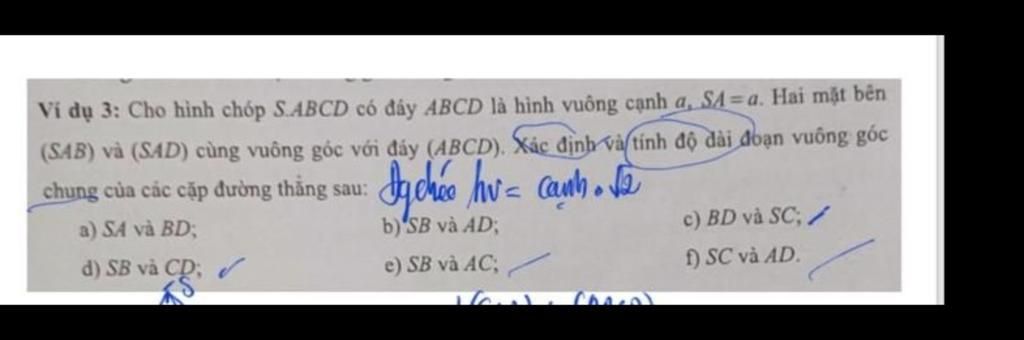 Ví dụ 3: Cho hình chóp S.ABCD có đáy ABCD là hình vuông cạnh a, SA = a. Hai mặt bên
(SAB) và (SAD) cùng vuông góc với đáy (ABCD). Xác định và tính độ dài đoạn vuông góc
chung của các cặp đường thẳng sau: Đg chéo hv = cạnh . √2
a) SA và BD; b) SB và AD; c) BD và SC;
d) SB và CD; e) SB và AC; f) SC và AD.
S